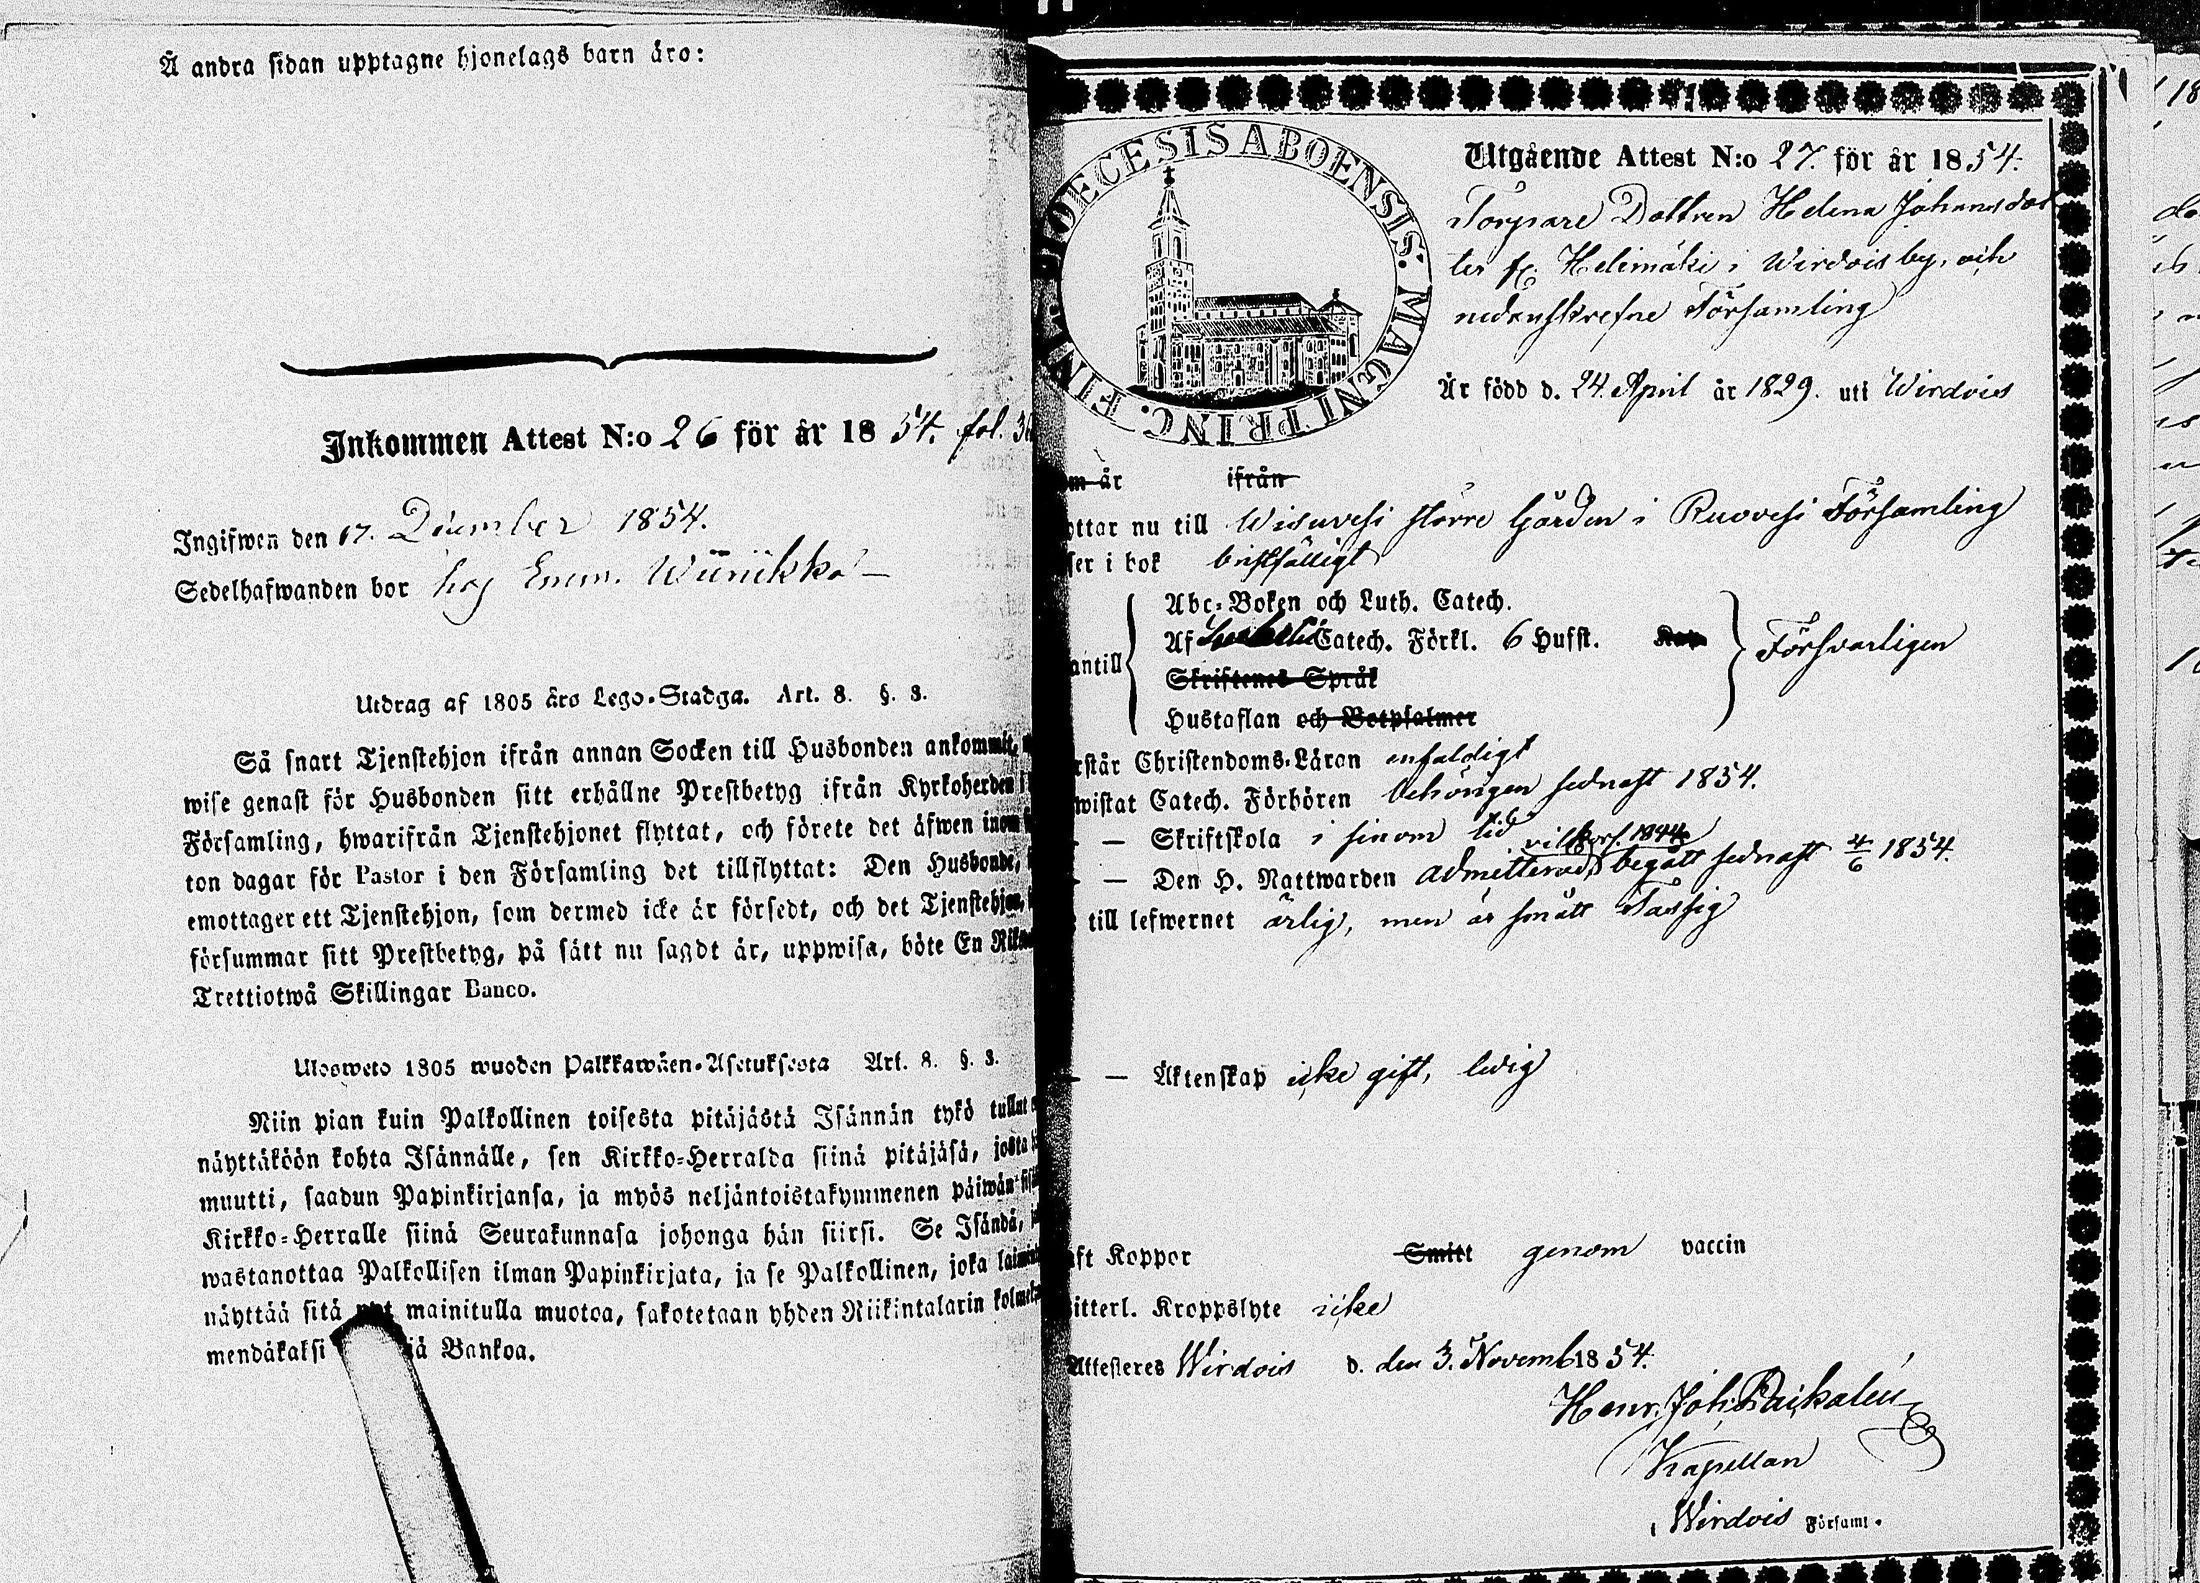 Å andra sidan upptagne hjonelags barn äro:
Inkommen Attest N:o 26 för år 1854. fol.
Ingifwen den 17. December 1854.
Sedelhafwanden bor hos Enm.
Utdrag af 1805 års Lego-Stadga. Art. 8. §. 3.
Så snart Tjenstehjon ifrån annan Socken till Husbonden ankommit,
wise genast för Husbonden sitt erhållne Prestbetyg ifrån Kyrkoherden i
Församling, hwarifrån Tjenstehjonet flyttat, och förete det äfwen inom
ton dagar för Pastor i den Församling det tillflyttat: Den Husbonde,
emottager ett Tjenstehjon, som dermed icke är försedt, och det Tjenstehjon,
försummar sitt Prestbetyg, på sätt nu sagdt är, uppwisa, böte En
Trettiotwå Skillingar Banco.
Ulosweto 1805 wuoden Palkkawäen-Asetuksesta Art. 8. §. 3.
Niin pian kuin Palkollinen toisesta pitäjästä Isännän tykö tullut
näyttäköön kohta Isännälle, sen Kirkko-Herralda siinä pitäjäsä, josta
muutti, saadun Papinkirjansa, ja myös neljäntoistakymmenen päiwän
Kirkko-Herralle siinä Seurakunnasa johonga hän siirsi. Se Isändä,
wastanottaa Palkollisen ilman Papinkirjata, ja se Palkollinen, joka
näyttää sitä mainitulla muotoa, sakotetaan yhden Riikintalarin
mendäkaksi Bankoa.
DIOECESIS ABOENSIS. MAGNI PRINC. FINL.
Utgående Attest N:o 27. för år 1854.
Torpare Dottren Helena Johansdot
ter fr. Helimäki i Wirdois by, och
nedanskrefne Församling
Är född d. 24. April år 1829. uti Wirdois
m är ifrån
ottar nu till Wisuvesi större Gården i Ruovesi Församling
ser i bok bristfälligt
antill
Abc-Boken och Luth. Catech.
Af Catech. Förkl. 6 Hufst.
Skriftenes Språk
Hustaflan och Botpsalmer
Försvarligen
rstår Christendoms-Läran enfaldigt
wistat Catech. Förhören behörigen sednast 1854.
— — Skriftskola i sinom tid
— — Den H. Nattwarden admitterad, begått sednast 4/6 1854.
till lefwernet ärlig, men är smått Tassig
— — Äktenskap icke gift, ledig
aft Koppor Smitt genom vaccin
itterl. Kroppslyte icke
Attesteres Wirdois d. den 3. Novemb 1854.
Henr. Joh. Raikalén
Kapellan
i Wirdois Förſaml.